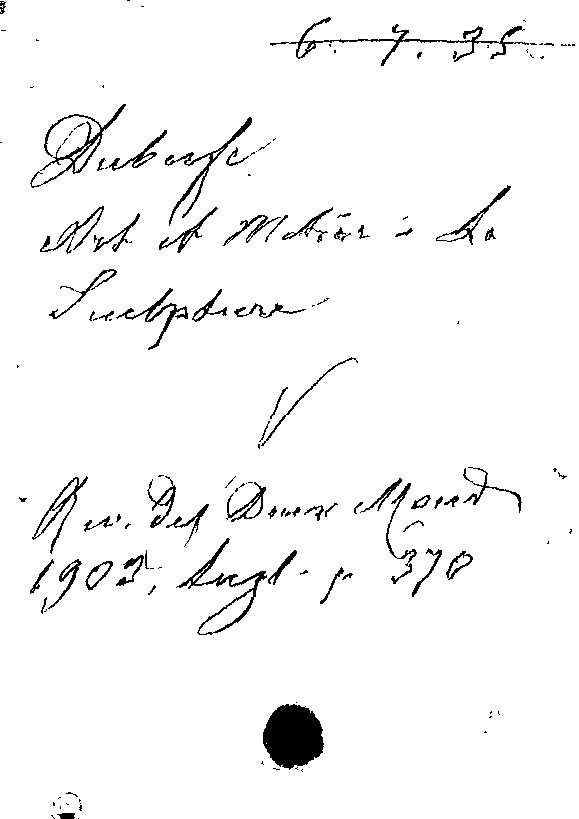 6. 7. 35.
Dubufe
Art et Métier : La
Sculpture
Rev. des Deux Mond
1903, p. 370